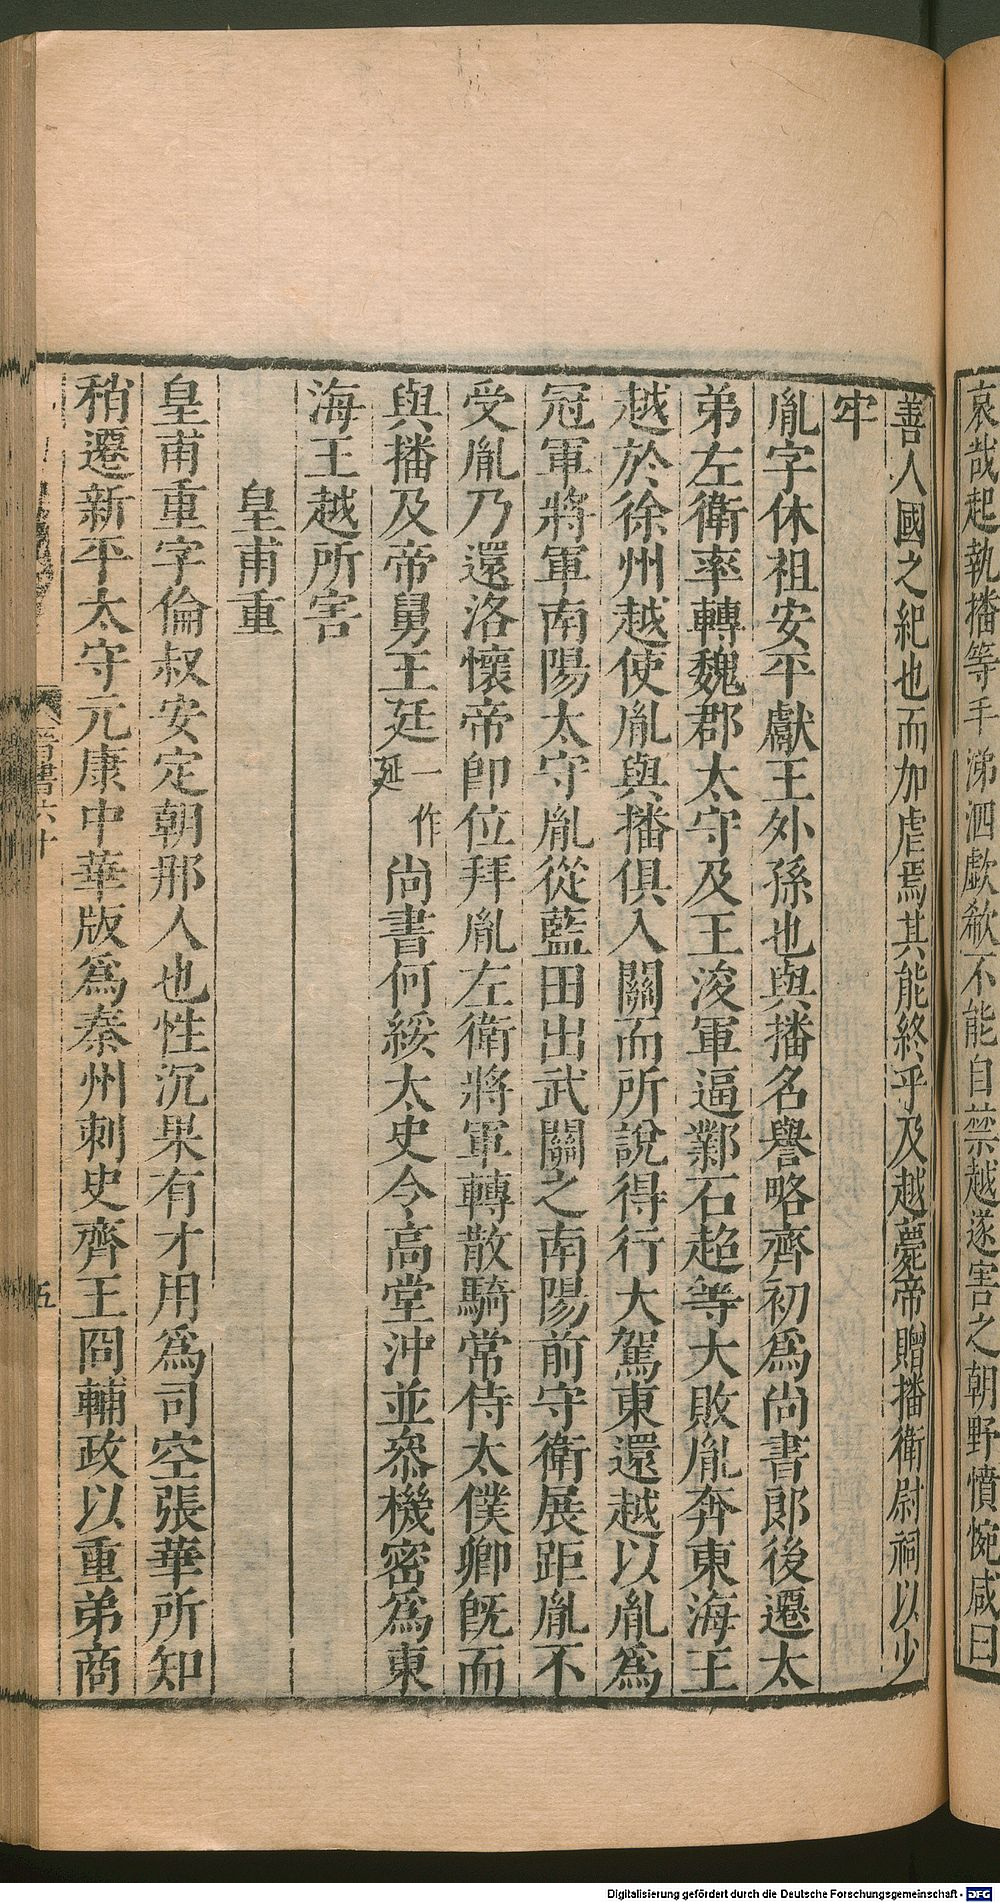 哀哉起執播等手涕泗歔欷不能自禁越遂害之朝野憤惋咸曰
善人國之紀也而加虐焉其能終乎及越薨帝贈播衛尉祠以少
牢
胤字休祖安平獻王外孫也與播名譽略齊初爲尚書郎後遷太
弟左衛率轉魏郡太守及王浚軍逼鄴石超等大敗胤奔東海王
越於徐州越使胤與播俱入關而所說得行大駕東還越以胤爲
冠軍將軍南陽太守胤從藍田出武關之南陽前守衛展距胤不
受胤乃還洛懷帝卽位拜胤左衛將軍轉散騎常侍太僕卿旣而
與播及帝舅王廷一作延尚書何綏太史令高堂沖並參機密爲東
海王越所害
皇甫重
皇甫重字倫叔安定朝那人也性沉果有才用爲司空張華所知
稍遷新平太守元康中華版爲秦州刺史齊王冏輔政以重弟商
晉書六十
五
Digitalisierung gefördert durch die Deutsche Forschungsgemeinschaft - DFG